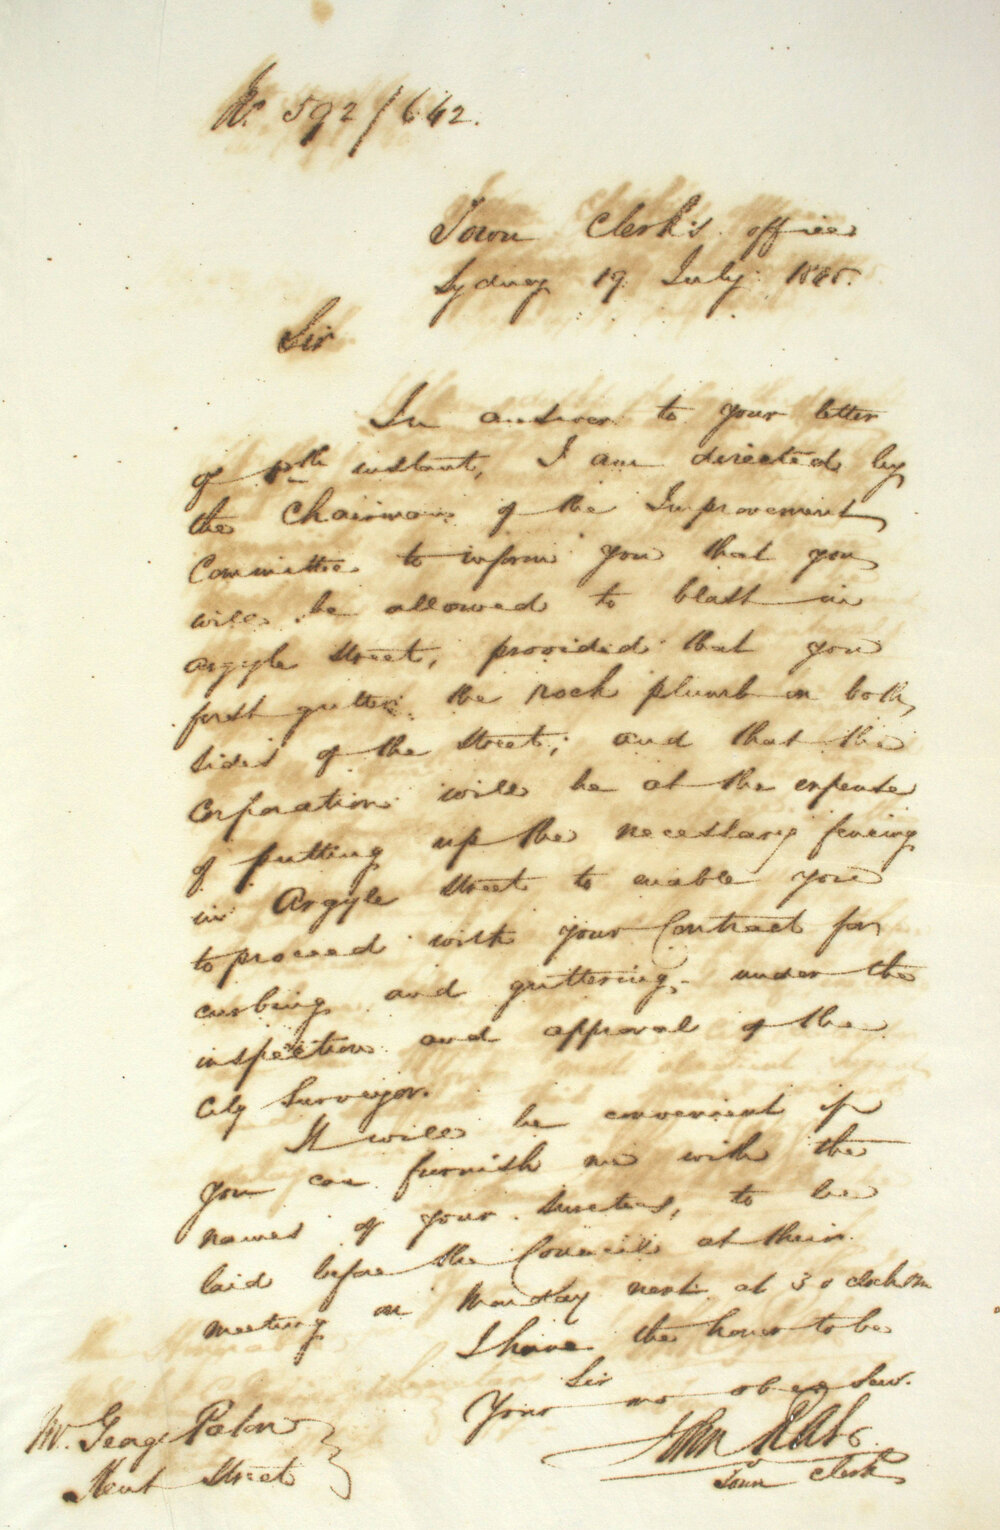 No. 592/642.
Town Clerk's office
Sydney 19 July
Sir
In answer to your letter
of instant, I am directed by
the Chairman of the Improvement
Committee to inform you that you
will be allowed to blast in
Argyle Street, provided that you
first gutter the rock plumb on both
sides of the Street; and that the
Corporation will be at the expense
of putting up the necessary fencing
in Argyle Street to enable you
to proceed with your Contract for
curbing and guttering, under the
inspection and approval of the
City Surveyor.
It will be convenient if
you can furnish me with the
names of your sureties, to be
laid before the Council at their
meeting on Monday next at 3 o clock
I have the honor to be
Sir
Your mo obed Serv.
John
Town Clerk
Mr. George Paton
Kent Street